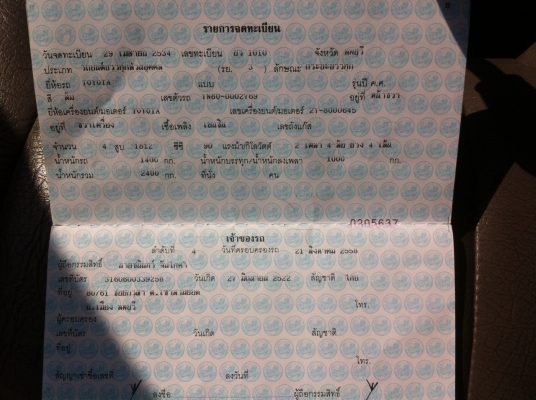 รายการจดทะเบียน
วันจดทะเบียน 29 เมษายน 2534 เลขทะเบียน 1010 จังหวัด ลพบุรี
ประเภท รถยนต์บรรทุกส่วนบุคคล (รย. 3 ) ลักษณะ กระบะบรรทุก
ยี่ห้อรถ TOYOTA แบบ รุ่นปี ค.ศ.
สี เลขตัวรถ อยู่ที่
ยี่ห้อเครื่องยนต์/มอเตอร์ TOYOTA เลขเครื่องยนต์/มอเตอร์ 2Y-8000645
อยู่ที่ เชื้อเพลิง เบนซิน เลขถังแก๊ส
จำนวน 4 สูบ 1812 ซีซี 90 แรงม้า/กิโลวัตต์ 2 เพลา 4 ล้อ ยาง 4 เส้น
น้ำหนักรถ 1400 กก. น้ำหนักบรรทุก/น้ำหนักลงเพลา 1000 กก.
น้ำหนักรวม 2400 กก. ที่นั่ง คน
0205637
เจ้าของรถ
ลำดับที่ 4 วันที่ครอบครองรถ 21 สิงหาคม
ผู้ถือกรรมสิทธิ์
เลขที่บัตร 3160600339258 วันเกิด 27 2522 สัญชาติ ไทย
ที่อยู่ 80/61
อ.เมือง ลพบุรี โทร.
ผู้ครอบครอง
เลขที่บัตร วันเกิด สัญชาติ
ที่อยู่
โทร.
สัญญาเช่าซื้อเลขที่ ลงวันที่
ลงชื่อ ผู้ถือกรรมสิทธิ์